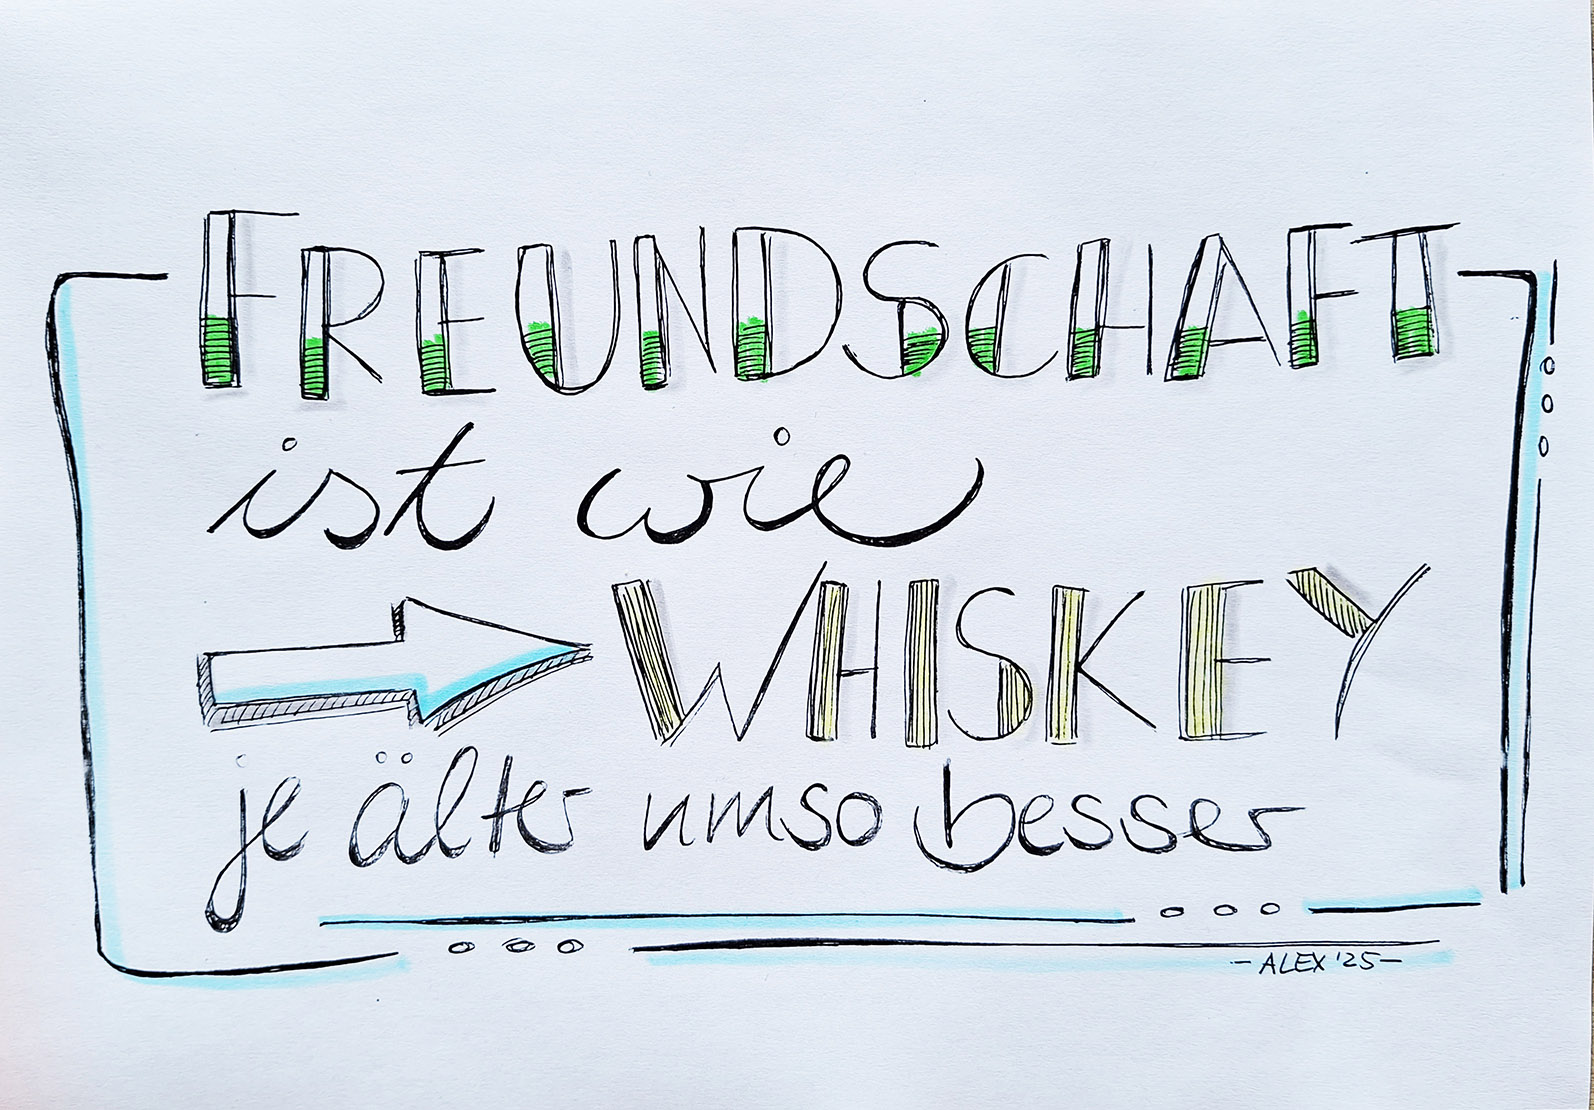 FREUNDSCHAFT
ist wie
WHISKEY
je älter umso besser
-ALEX '25-